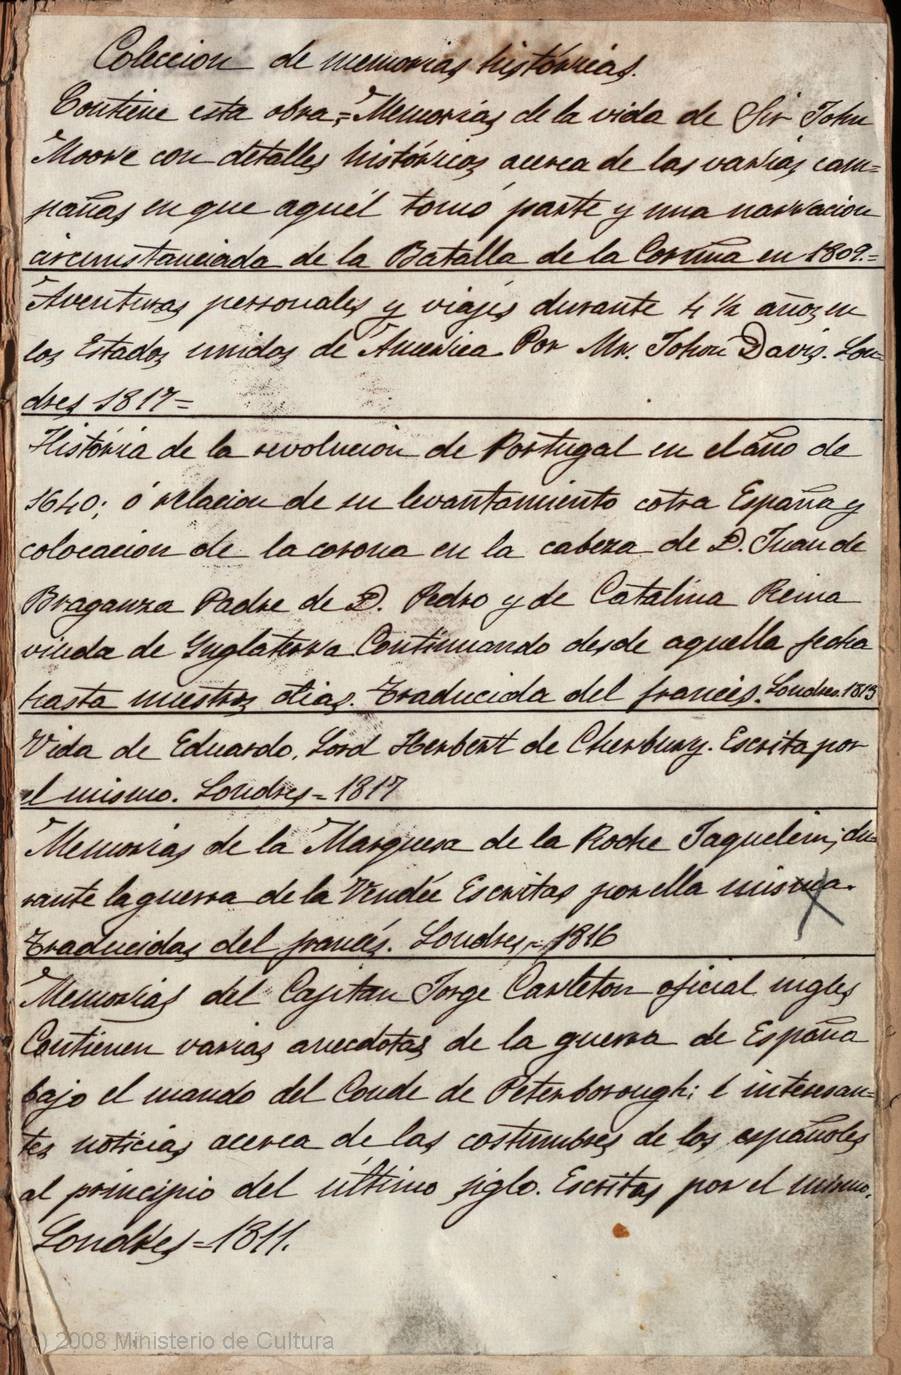 Coleccion de memorias históricas.
Contiene esta obra,= Memorias de la vida de Sir John
Moore con detalles históricos acerca de las varias cam=
pañas en que aquél tomó parte y una narracion
circunstanciada de la Batalla de la Coruña en 1809.=
Aventuras personales y viajes durante 4 ½ años en
los Estados unidos de America Por Mr. John Davis. Lon=
dres 1817=
História de la revolucion de Portugal en el año de
1640; ó relacion de su levantamiento cotra España y
colocacion de la corona en la cabeza de D. Juan de
Braganza Padre de D. Pedro y de Catalina Reina
viuda de Inglaterra Continuando desde aquella fecha
hasta nuestros dias. Traducida del francés. Londres 1813
Vida de Eduardo, Lord Herbert de Cherbury. Escrita por
el mismo. Londres = 1817
Memorias de la Marquesa de la Roche Jaquelein, du=
rante la guerra de la Vendée Escritas por ella misma.
Traducidas del francés. Londres = 1816
Memorias del Capitan Jorge Carleton oficial ingles
Contienen varias anecdotas de la guerra de España
bajo el mando del Conde de Peterborough; é interesan=
tes noticias acerca de las costumbres de los españoles
al principio del último siglo. Escritas por el mismo.
Londres = 1811.
(c) 2008 Ministerio de Cultura